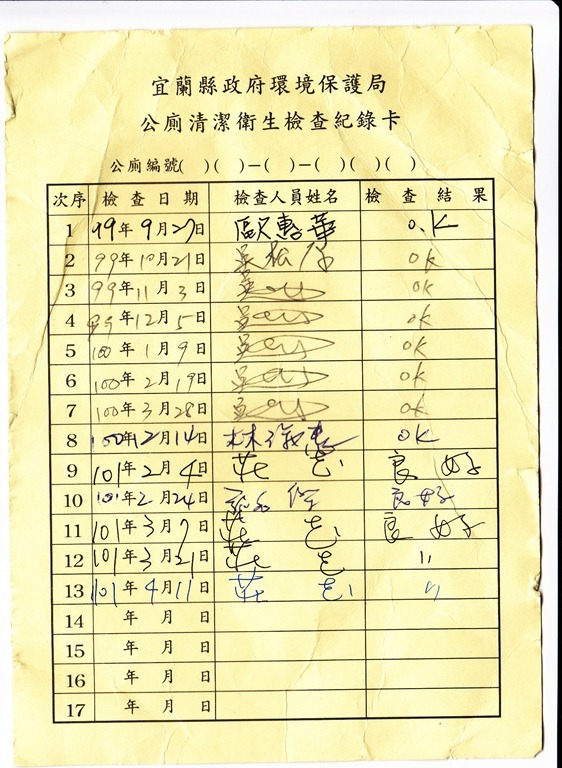 宜蘭縣政府環境保護局
公廁清潔衛生檢查紀錄卡
公廁編號( )( )－( )－( )( )( )
次序 檢查日期 檢查人員姓名 檢查結果
1 99年9月27日 歐惠華 O.K
2 99年10月21日 吳 OK
3 99年11月3日 吳 OK
4 99年12月5日 吳 OK
5 100年1月9日 吳 OK
6 100年2月19日 吳 OK
7 100年3月28日 吳 OK
8 100年12月14日 林 OK
9 101年2月4日 莊 志 良好
10 101年2月24日 良好
11 101年3月7日 莊 志 良好
12 101年3月21日 莊 志 〃
13 101年4月11日 莊 志 〃
14 年 月 日
15 年 月 日
16 年 月 日
17 年 月 日